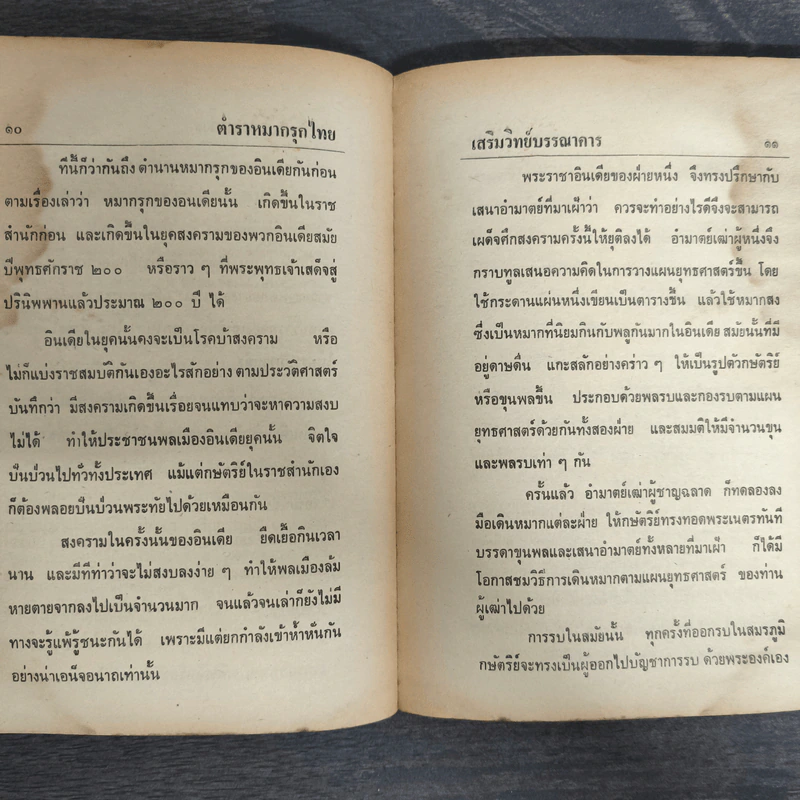 ๑๐
ตำราหมากรุกไทย
ทีนี้ก็ว่ากันถึง ตำนานหมากรุกของอินเดียกันก่อน
ตามเรื่องเล่าว่า หมากรุกของอินเดียนั้น เกิดขึ้นในราช
สำนักก่อน และเกิดขึ้นในยุคสงครามของพวกอินเดียสมัย
ปีพุทธศักราช ๒๐๐ หรือราว ๆ ที่พระพุทธเจ้าเสด็จสู่
ปรินิพพานแล้วประมาณ ๒๐๐ ปี ได้
อินเดียในยุคนั้นคงจะเป็นโรคบ้าสงคราม หรือ
ไม่ก็แบ่งราชสมบัติกันเองอะไรสักอย่าง ตามประวัติศาสตร์
บันทึกว่า มีสงครามเกิดขึ้นเรื่อยจนแทบว่าจะหาความสงบ
ไม่ได้ ทำให้ประชาชนพลเมืองอินเดียยุคนั้น จิตใจ
ปั่นป่วนไปทั่วทั้งประเทศ แม้แต่กษัตริย์ในราชสำนักเอง
ก็ต้องพลอยปั่นป่วนพระทัยไปด้วยเหมือนกัน
สงครามในครั้งนั้นของอินเดีย ยืดเยื้อกินเวลา
นาน และมีทีท่าว่าจะไม่สงบลงง่าย ๆ ทำให้พลเมืองล้ม
หายตายจากลงไปเป็นจำนวนมาก จนแล้วจนเล่าก็ยังไม่มี
ทางจะรู้แพ้รู้ชนะกันได้ เพราะมีแต่ยกกำลังเข้าห้ำหั่นกัน
อย่างน่าเอน็จอนาถเท่านั้น
เสริมวิทย์บรรณาคาร
๑๑
พระราชาอินเดียของฝ่ายหนึ่ง จึงทรงปรึกษากับ
เสนาอำมาตย์ที่มาเฝ้าว่า ควรจะทำอย่างไรดีจึงจะสามารถ
เผด็จศึกสงครามครั้งนี้ให้ยุติลงได้ อำมาตย์เฒ่าผู้หนึ่งจึง
กราบทูลเสนอความคิดในการวางแผนยุทธศาสตร์ขึ้น โดย
ใช้กระดานแผ่นหนึ่งเขียนเป็นตารางขึ้น แล้วใช้หมากสง
ซึ่งเป็นหมากที่นิยมกินกับพลูกันมากในอินเดีย สมัยนั้นที่มี
อยู่ดาษดื่น แกะสลักอย่างคร่าว ๆ ให้เป็นรูปตัวกษัตริย์
หรือขุนพลขึ้น ประกอบด้วยพลรบและกองรบตามแผน
ยุทธศาสตร์ด้วยกันทั้งสองฝ่าย และสมมติให้มีจำนวนขุน
และพลรบเท่า ๆ กัน
ครั้นแล้ว อำมาตย์เฒ่าผู้ชาญฉลาด ก็ทดลองลง
มือเดินหมากแต่ละฝ่าย ให้กษัตริย์ทรงทอดพระเนตรทันที
บรรดาขุนพลและเสนาอำมาตย์ทั้งหลายที่มาเฝ้า ก็ได้มี
โอกาสชมวิธีการเดินหมากตามแผนยุทธศาสตร์ ของท่าน
ผู้เฒ่าไปด้วย
การรบในสมัยนั้น ทุกครั้งที่ออกรบในสมรภูมิ
กษัตริย์จะทรงเป็นผู้ออกไปบัญชาการรบ ด้วยพระองค์เอง